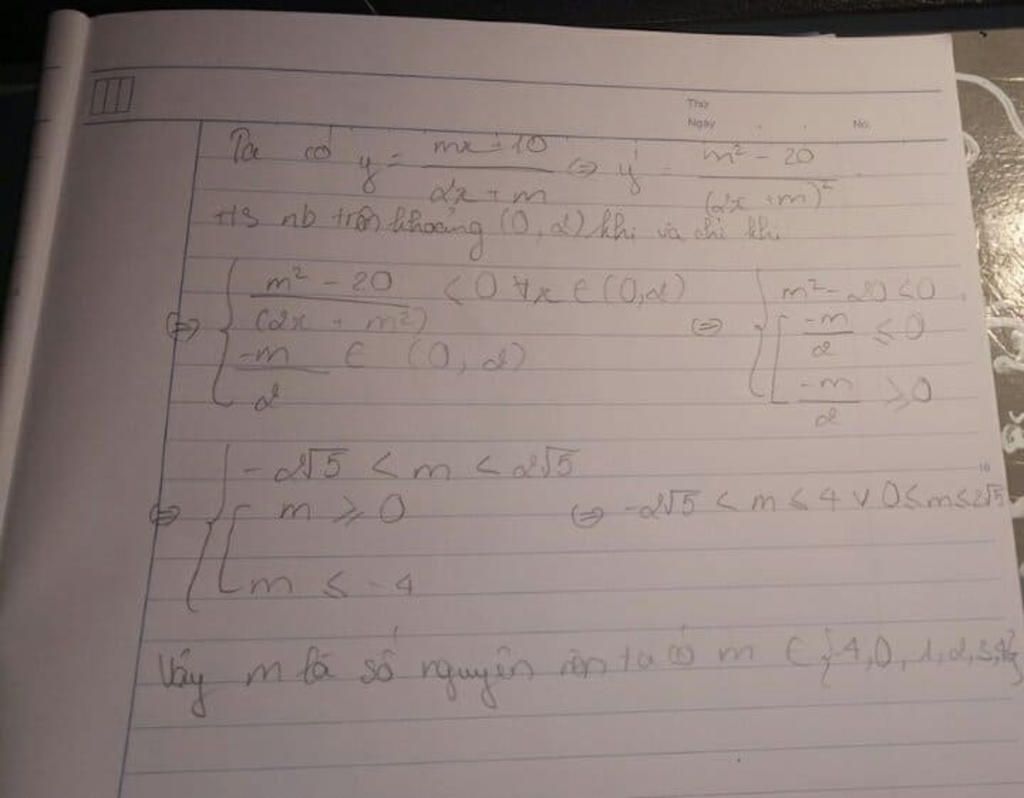 Thứ
Ngày . . No.
Ta có y = (mx + 10)/(2x + m) ⇔ y' = (m² - 20)/(2x + m)²
HS nb trên khoảng (0, 2) khi và chỉ khi
⇔ { (m² - 20)/(2x + m²) < 0 ∀x ∈ (0,2) ⇔ { m² - 20 < 0
-m/2 ∈ (0, 2) [ -m/2 ≤ 0
-m/2 ≥ 0
⇔ { -2√5 < m < 2√5
[ m ≥ 0 ⇔ -2√5 < m ≤ 4 ∨ 0 ≤ m ≤ 2√5
m ≤ -4
Vậy m là số nguyên nên ta có m ∈ {-4, 0, 1, 2, 3, 4}